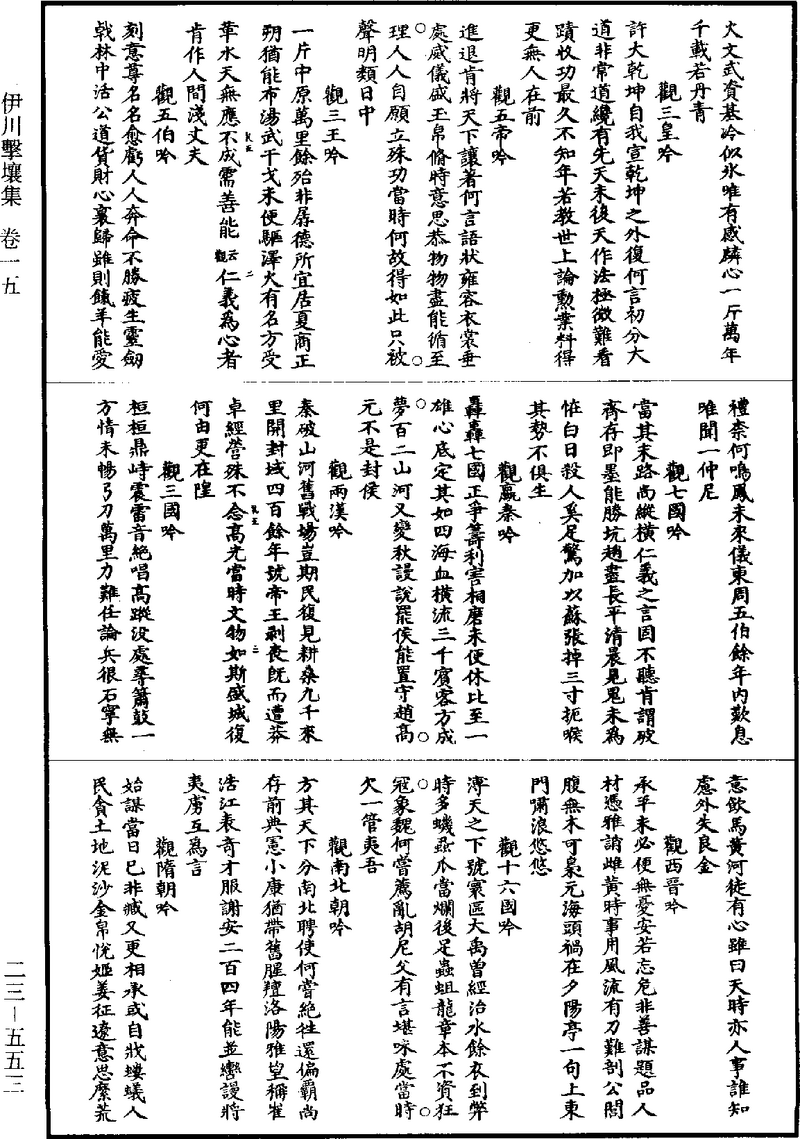 伊川擊壤集 卷一五
二三—五五三
火文武資基冷似氷唯有感麟心一片萬年
千載若丹青
觀三皇吟
許大乾坤自我宣乾坤之外復何言初分大
道非常道纔有先天未後天作法極微難看
蹟收功最久不知年若教世上論勲業料得
更無人在前
觀五帝吟
進退肯將天下讓著何言語狀雍容衣裳垂
處威儀盛玉帛脩時意思恭物物盡能循至
理人人自願立殊功當時何故得如此只被
聲明類日中
觀三王吟
一片中原萬里餘殆非孱德所宜居夏商正
朔猶能布湯武干戈未便驅澤火有名方受
革水天無應不成需善能仁義為心者
肯作人間淺丈夫
觀五伯吟
刻意尊名名愈虧人人奔命不勝疲生靈劒
戟林中活公道貨財心裏歸雖則餼羊能愛
禮柰何鳴鳳未來儀東周五伯餘年內歎息
唯聞一仲尼
觀七國吟
當其末路尚縱橫仁義之言固不聽肯謂破
齊存即墨能勝坑趙盡長平清晨見鬼未為
恠白日殺人奚足驚加以蘇張掉三寸扼喉
其勢不俱生
觀嬴秦吟
轟轟七國正爭籌利害相磨未便休比至一
雄心底定其如四海血橫流三千賓客方成
夢百二山河又變秋謾說罷侯能置守趙高
元不是封侯
觀兩漢吟
秦破山河舊戰場豈期民復見耕桑九千來
里開封域四百餘年號帝王剥喪旣而遭莽
卓經營殊不念高光當時文物如斯盛城復
何由更在隍
觀三國吟
桓桓鼎峙震雷音絶唱高蹤没處尋簫鼓一
方情未暢弓刀萬里力難任論兵很石寧無
意飲馬黄河徒有心雖曰天時亦人事誰知
慮外失良金
觀西晉吟
承平未必便無憂安若忘危非善謀題品人
材憑雅誚雌黄時事用風流有刀難剖公閭
腹無木可梟元海頭禍在夕陽亭一句上東
門嘯浪悠悠
觀十六國吟
溥天之下號寰區大禹曾經治水餘衣到弊
時多蟣蝨瓜當爛後足蟲蛆龍章本不資狂
冦象魏何嘗薦亂胡尼父有言堪味處當時
欠一管夷吾
觀南北朝吟
方其天下分南北聘使何嘗絶往還偏霸尚
存前典憲小康猶帶舊腥羶洛陽雅望稱崔
浩江表奇才服謝安二百四年能並轡謾將
夷虜互為言
觀隋朝吟
始謀當日已非臧又更相承或自戕螻蟻人
民貪土地泥沙金帛恱姬姜征遼意思縻荒